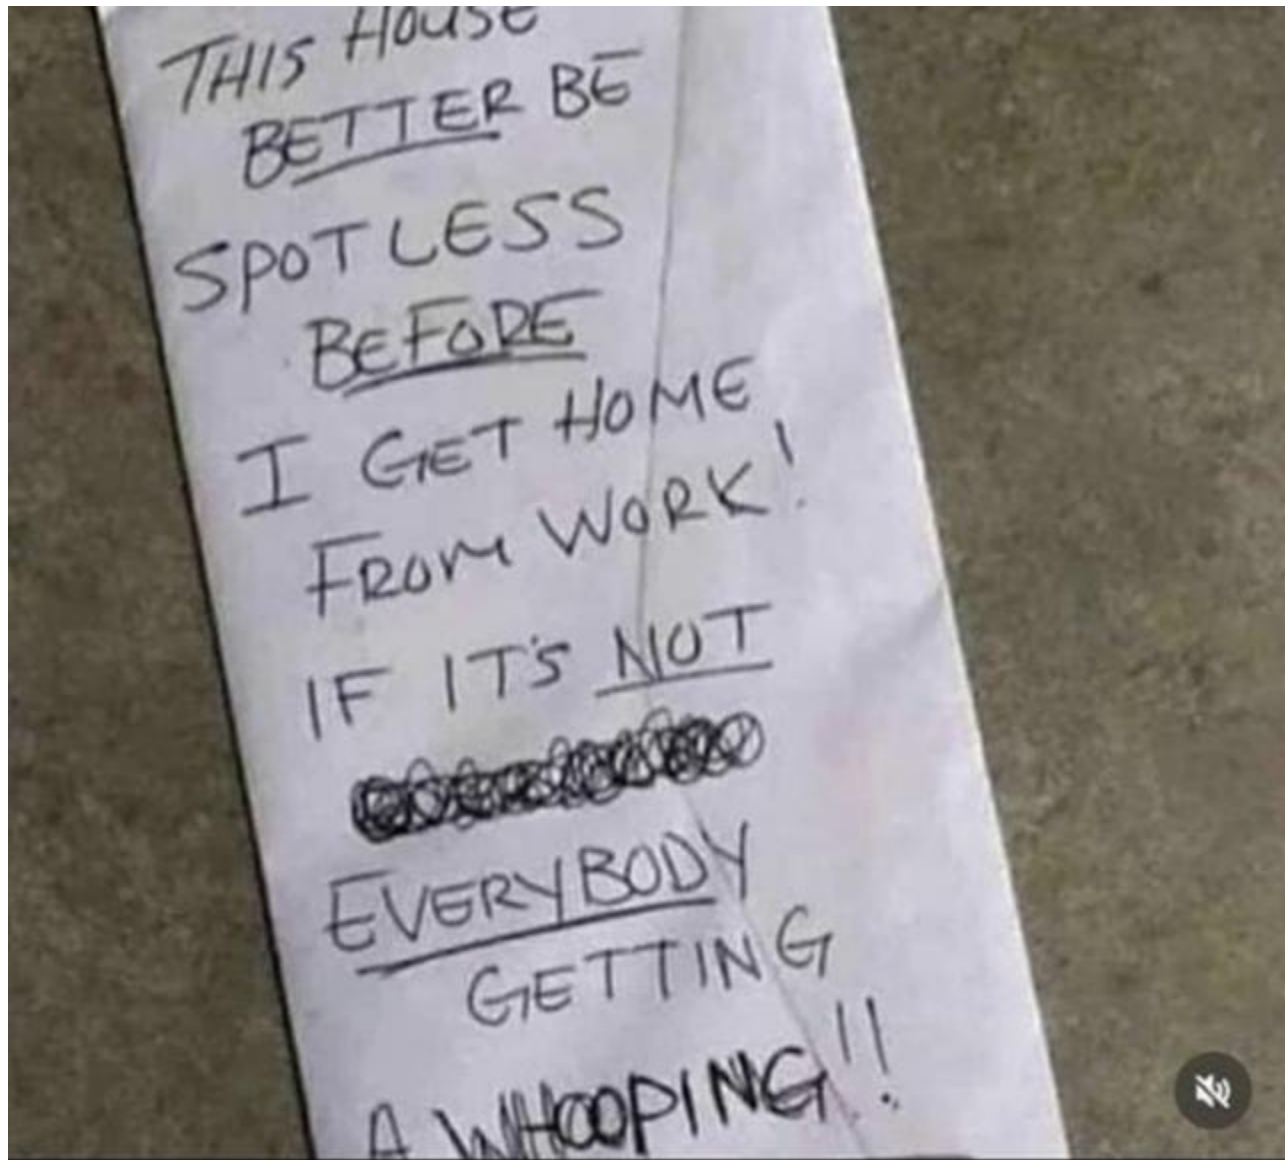 THIS HOUSE
BETTER BE
SPOTLESS
BEFORE
I GET HOME
FROM WORK!
IF IT'S NOT
EVERYBODY
GETTING
A WHOOPING!!